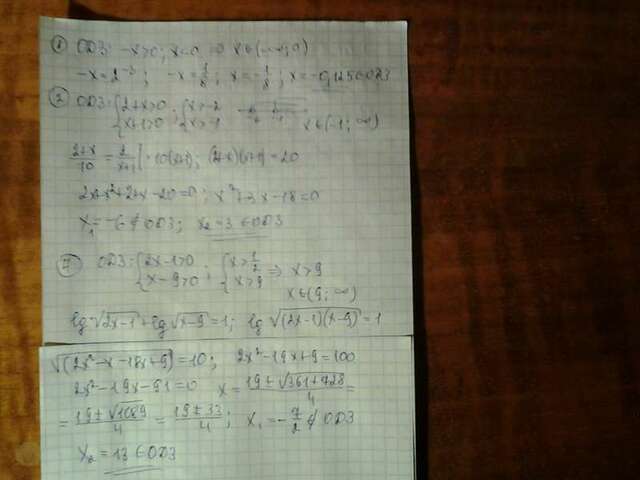 ① ОДЗ: -x>0; x<0 ⇒ x∈(-∞; 0)
-x=2⁻³; -x=1/8; x=-1/8; x=-0,125∈ОДЗ
② ОДЗ: {2+x>0 x+1>0; {x>-2 x>-1 x∈(-1; ∞)
(2+x)/10 = 2/(x+1) | ·10(x+1); (2+x)(x+1)=20
2x+x²+2+x-20=0; x²+3x-18=0
x₁=-6∉ОДЗ; x₂=3∈ОДЗ
ОДЗ: {2x-1>0 x-9>0; {x>1/2 x>9 ⇒ x>9
x∈(9; ∞)
lg√(2x-1)+lg√(x-9)=1; lg√((2x-1)(x-9))=1
√(2x²-x-18x+9)=10; 2x²-19x+9=100
2x²-19x-91=0 x=(19±√(361+728))/4=
=(19±√1089)/4=(19±33)/4; x₁=-7/2∉ОДЗ
x₂=13∈ОДЗ